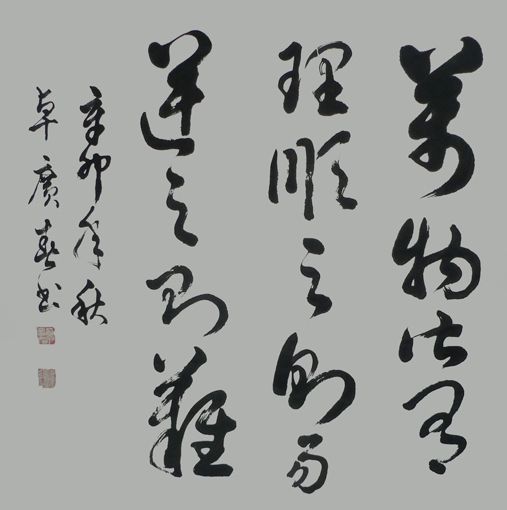 萬物皆有
理順之則易
逆之則難
辛卯年秋
卓廣春書